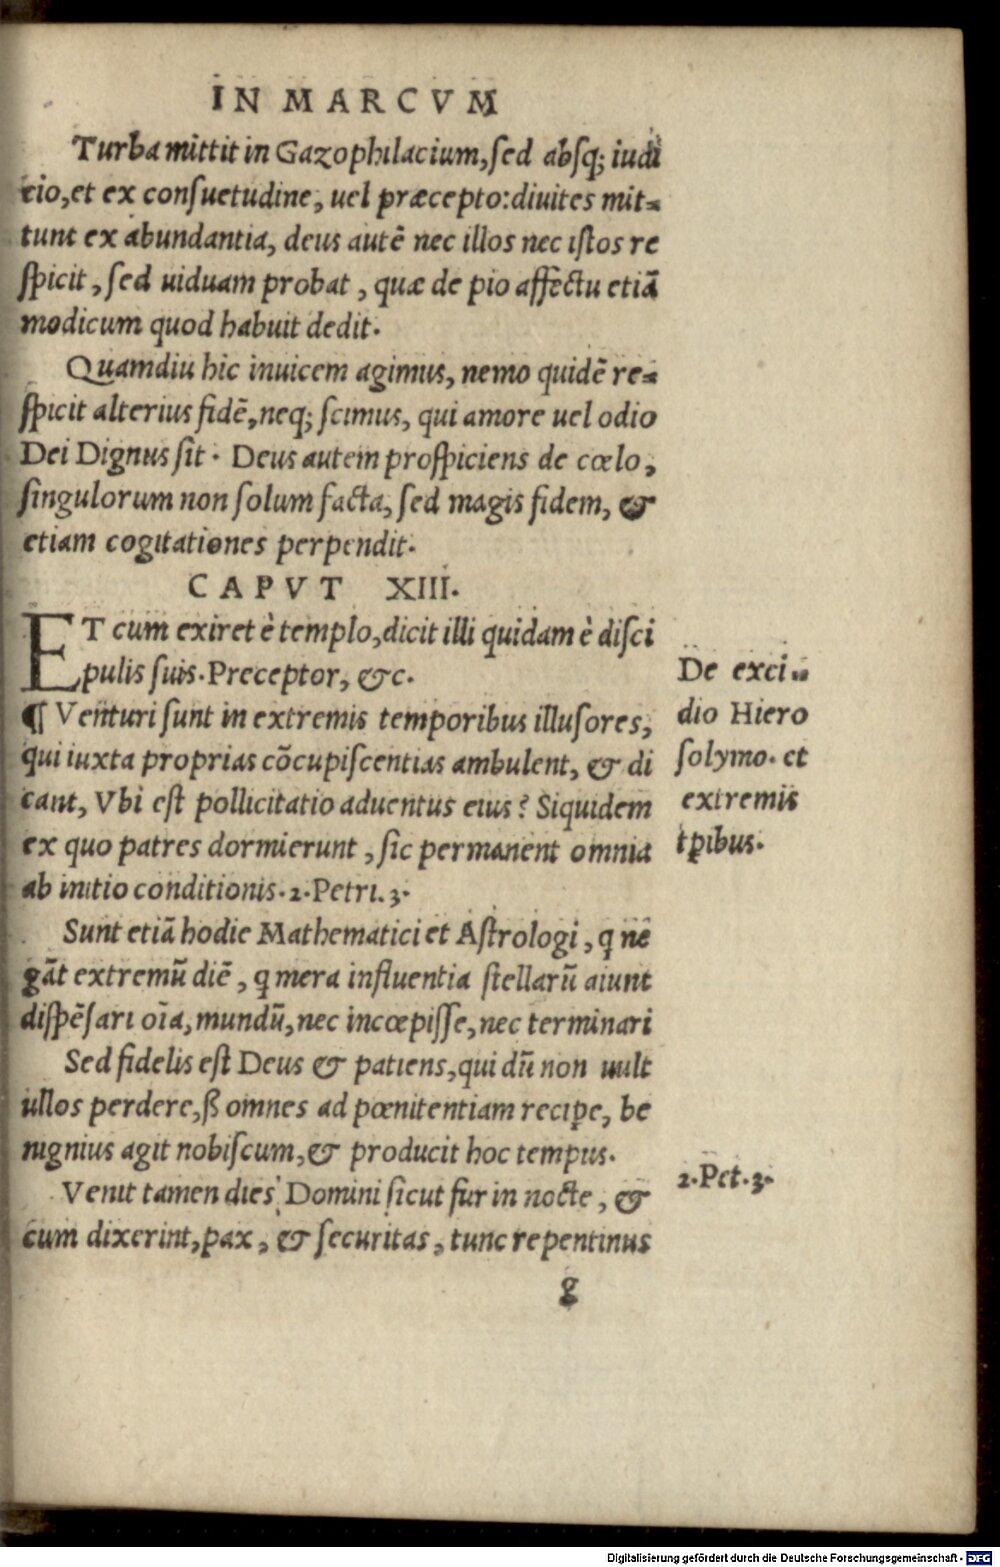 IN MARCVM
Turba mittit in Gazophilacium, sed absq; iudi
cio, et ex consuetudine, uel præcepto: diuites mit-
tunt ex abundantia, deus autē nec illos nec istos re
spicit, sed uiduam probat, quæ de pio affectu etiā
modicum quod habuit dedit.
Quamdiu hic inuicem agimus, nemo quidē re-
spicit alterius fidē, neq; scimus, qui amore uel odio
Dei Dignus sit. Deus autem prospiciens de cœlo,
singulorum non solum facta, sed magis fidem, &
etiam cogitationes perpendit.
CAPVT XIII.
ET cum exiret è templo, dicit illi quidam è disci
pulis suis. Preceptor, &c.
¶ Venturi sunt in extremis temporibus illusores,
qui iuxta proprias cōcupiscentias ambulent, & di
cant, Vbi est pollicitatio aduentus eius? Siquidem
ex quo patres dormierunt, sic permanent omnia
ab initio conditionis. 2. Petri. 3.
Sunt etiā hodie Mathematici et Astrologi, q ne
gāt extremū diē, q mera influentia stellarū aiunt
dispēsari oīa, mundū, nec incœpisse, nec terminari
Sed fidelis est Deus & patiens, qui dū non uult
ullos perdere, ß omnes ad pœnitentiam recipe, be
nignius agit nobiscum, & producit hoc tempus.
Venit tamen dies Domini sicut fur in nocte, &
cum dixerint, pax, & securitas, tunc repentinus
g
De exci-
dio Hiero
solymo. et
extremis
tpibus.
2. Pet. 3.
Digitalisierung gefördert durch die Deutsche Forschungsgemeinschaft - DFG